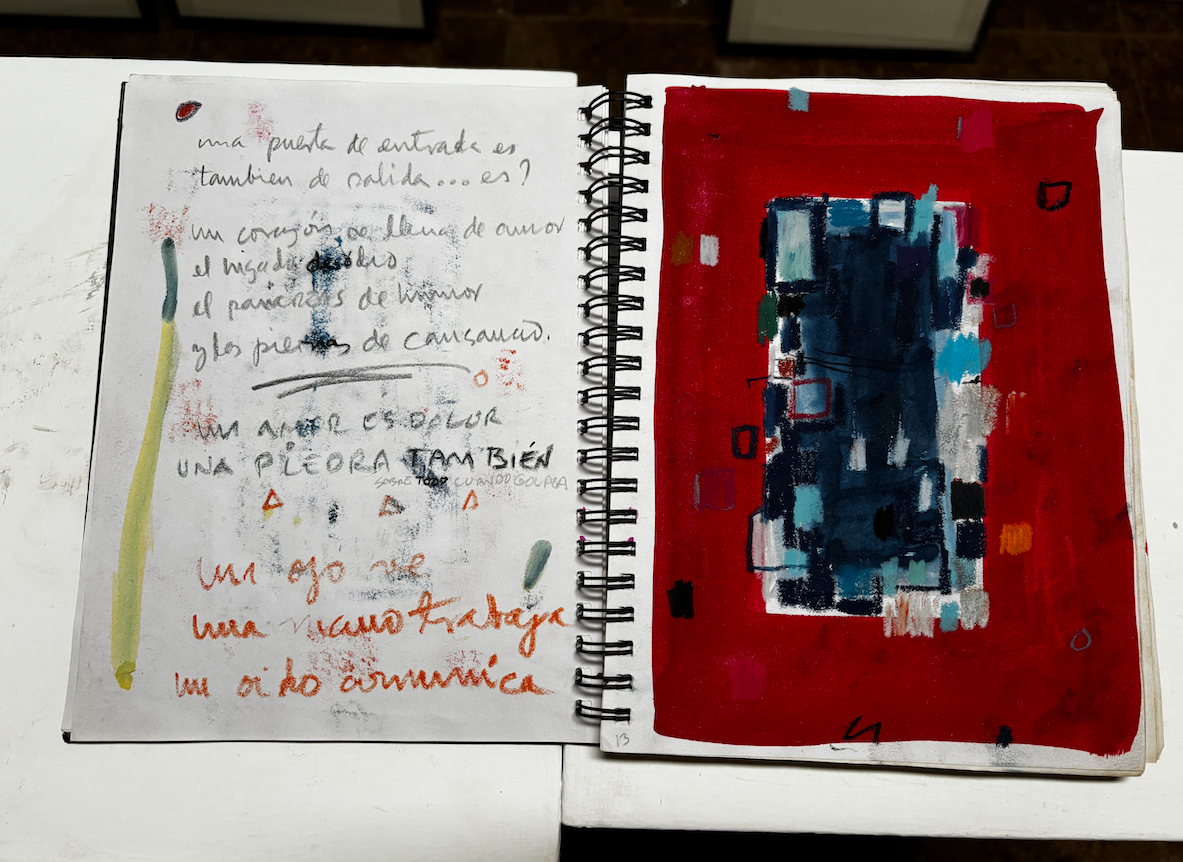 una puerta de entrada es
tambien de salida... es?
un corazón se llena de amor
el higado de odio
el páncreas de humor
y las piernas de cansancio.
UN AMOR ES DOLOR
UNA PIEDRA TAMBIÉN
SOBRE TODO CUANDO GOLPEA
un ojo ve
una mano trabaja
un oido comunica
13